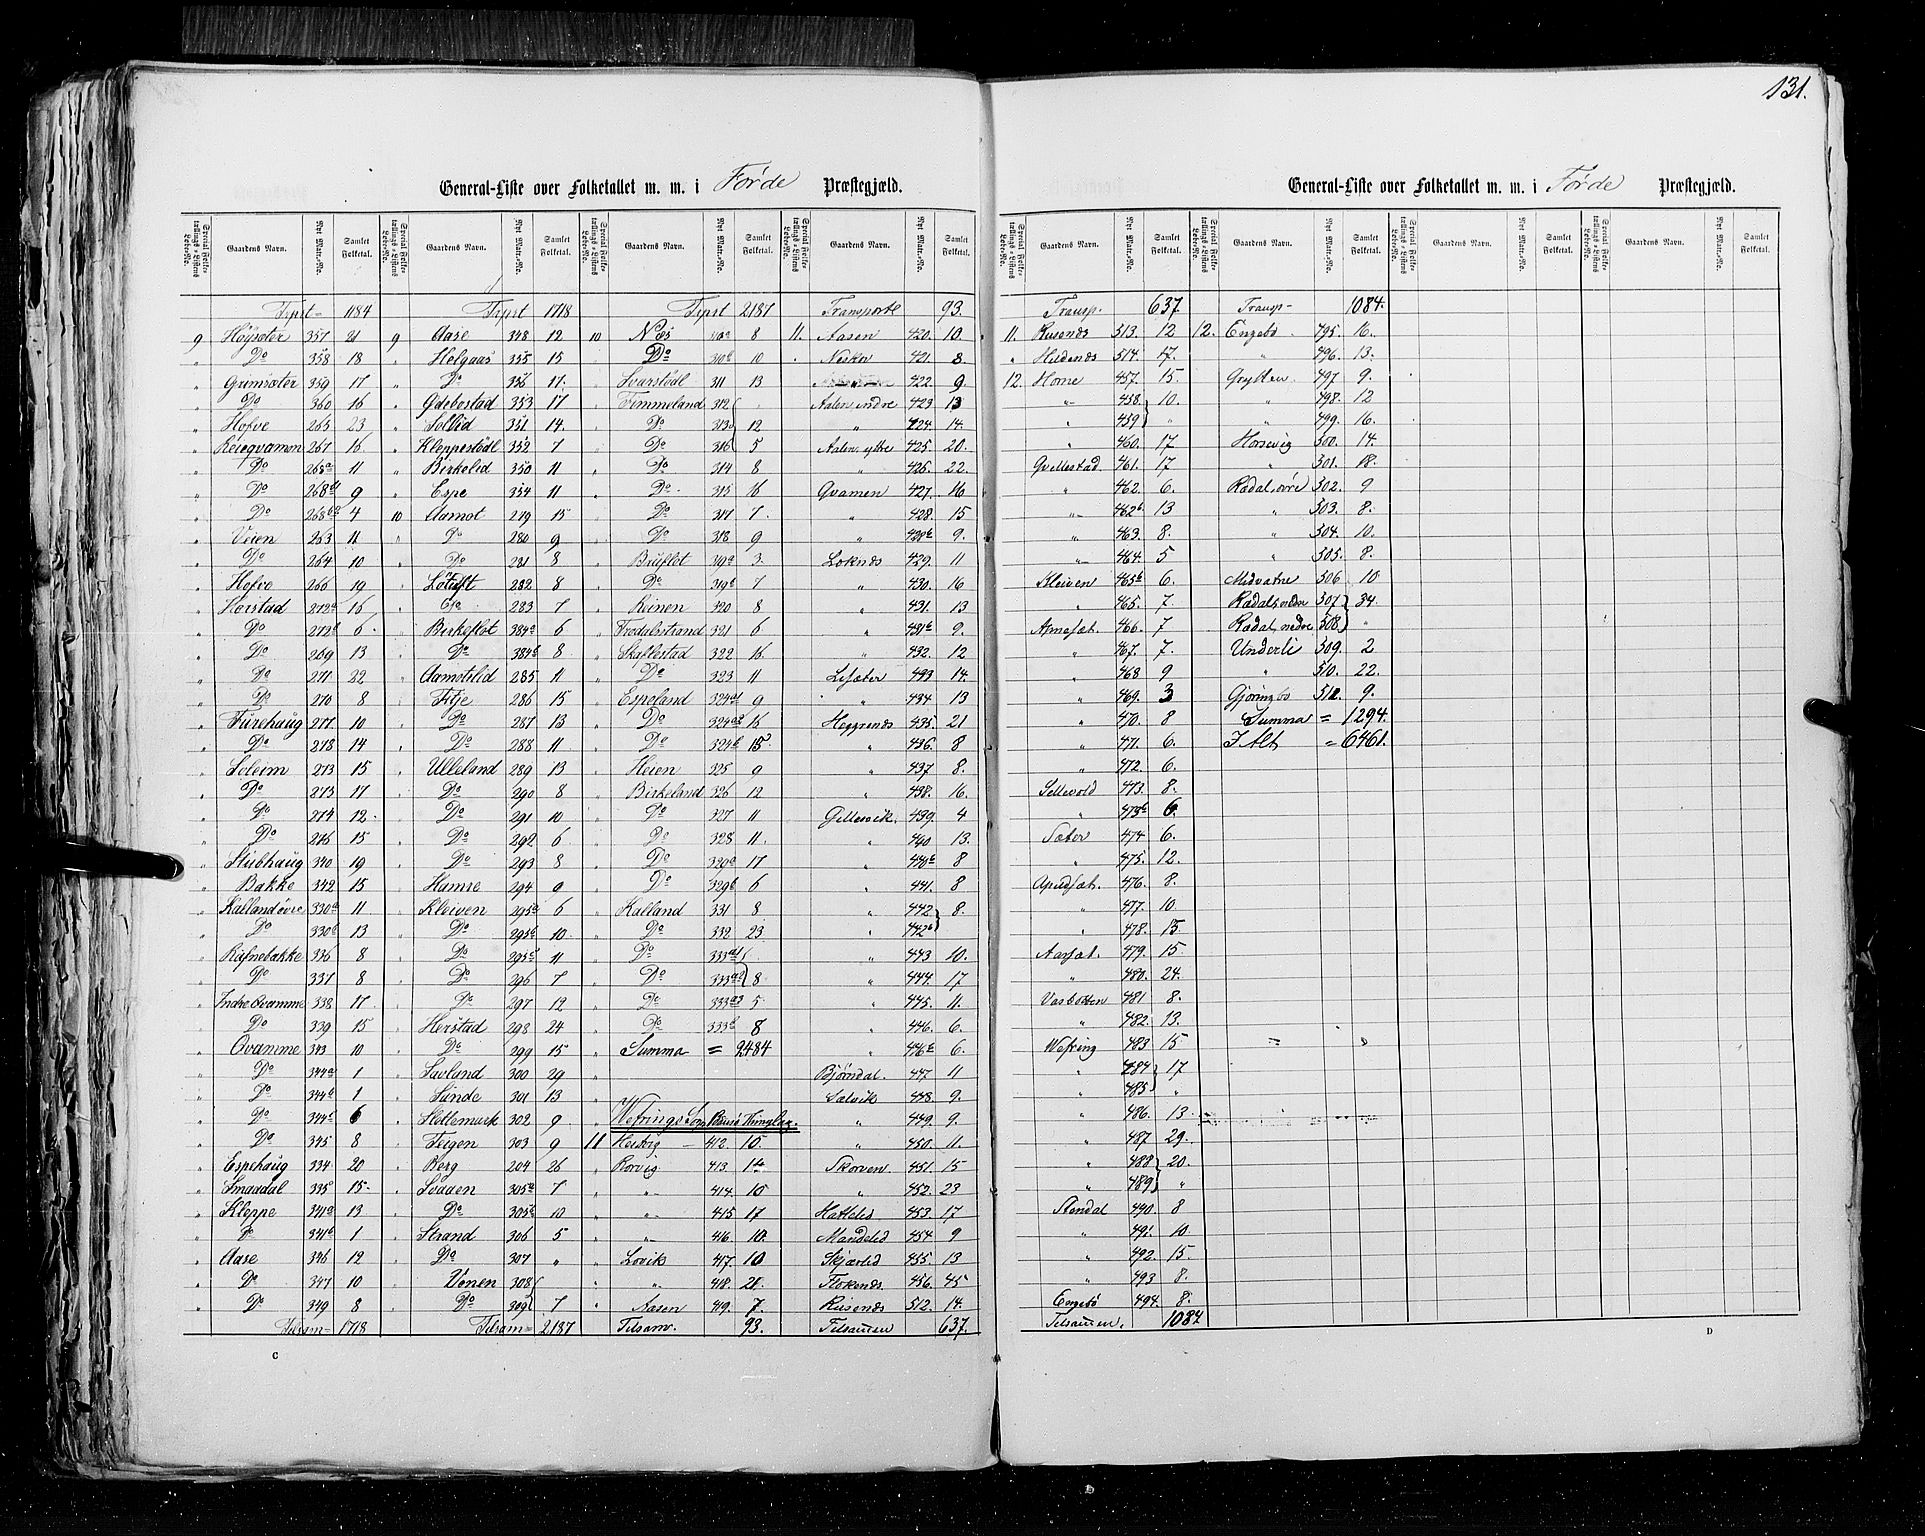 131.
General-Liste over Folketallet m. m. i Førde Præstegjæld.
Special Folketællings-Listens Løbe-No. Gaardens Navn. Nyt Matr.-No. Samlet Folketal.
Trpst - 1184
9 Høysæter 357 21
" Do 358 18
" Grimsæter 359 17
" Do 360 16
" Hofve 265 23
" Reieqvamen 267 16
" Do 268a 11
" Do 268b1 9
" Do 268b2 4
" Veien 263 11
" Do 264 10
" Hofve 266 19
" Herstad 272a 16
" Do 272b 6
" Do 269 13
" Do 271 22
" Do 270 8
" Furehaug 277 10
" Do 278 14
" Soleim 273 15
" Do 273 17
" Do 274 12
" Do 276 15
" Stubhaug 340 19
" Bakke 342 15
" Kalland øvre 330a 11
" Do 330b 13
" Refnebakke 336 8
" Do 337 8
" Indre Qvamme 338 17
" Do 339 15
" Qvamme 343 10
" Do 344a 1
" Do 344b 1
" Do 344c 6
" Do 345 8
" Espehaug 334 20
" Smaadal 335 15
" Kleppe 341a 13
" Do 341b 1
" Aase 346 12
" Do 347 10
" Do 349 8
Tilsam - 1718
C
Gaardens Navn. Nyt Matr.-No. Samlet Folketal.
Trpst 1718
9 Aase 348 12
" Helgaas 355 15
" Do 356 17
" Ødebostad 353 17
" Solliid 351 14
" Kleppestødl 352 7
" Birkelid 350 11
" Espe 354 11
10 Aamot 279 15
" Do 280 9
" Do 281 8
" 282 8
" Do 283 7
" Birkeflot 384a 6
" Do 384b 8
" Aamotslid 285 11
" Fitje 286 15
" Do 287 13
" Do 288 11
" Ulleland 289 13
" Do 290 8
" Do 291 10
" Do 292 6
" Do 293 8
" Hamre 294 9
" Kleiven 295a 6
" Do 295b 10
" Do 295c 11
" Do 296 7
" Do 297 12
" Herstad 298 24
" Do 299 15
" Savland 300 29
" Sunde 301 13
" Slettemark 302 9
" Feigen 303 9
" Berg 204 26
" Solgaen 305a 7
" Do 305b 10
" Strand 306 5
" Do 307 "
" Vonen 308
" Do 309 7
Tilsam - 2187
Gaardens Navn. Nyt Matr.-No. Samlet Folketal.
Trpst 2187
10 Næs 310a 8
Do 310b 10
Svarstødl 311 13
Femmeland 312
Do 313 12
Do 316 5
Do 314 8
Do 315 16
Do 317 7
Do 318 9
Bruflot 319a 3
Do 319b 7
Reinen 320 8
Frodalsstrand 321 6
Skaflestad 322 16
Do 323 11
Espeland 324a1 9
Do 324a2 16
Do 324b 15
Heien 325 9
Birkeland 326 12
Do 327 11
Do 328 11
Do 329a 17
Do 329b 6
Kalland 331 8
Do 332 23
Do 333a1
Do 333a2 8
Do 333a3 5
Do 333b 8
Summa = 2484
Wefrings Sogn Thinglag.
11 Hestvig 412 10
Rørvig 413 14
" 414 10
" 415 17
" 416 10
Løvik 417 10
" 418 21
Aasen 419 7
Tilsam. 93.
Gaardens Navn. Nyt Matr.-No. Samlet Folketal.
Transporte 93.
11. Aasen 420. 10.
Neskør 421. 8.
" 422. 9.
Aalen indre 423 13
" 424. 14.
Aalen, yttre 425. 20.
" 426. 22.
Qvamen 427. 16
" 428. 15
" 428b 9.
Løknæs 429. 11
" 430. 16
" 431. 13
" 431b 9.
" 432. 12
Lisæter 433 14.
" 434 13
Heggenæs 435. 21
" 436. 8
" 437 8.
" 438. 16.
Gillesvik. 439. 4
" 440 13.
" 440b 8
" 441. 8
" 442 8.
" 442b
" 443 10.
" 444. 17
" 445. 11.
" 446. 6.
" 446b 6.
Bjørndal. 447 11
Sælvik 448. 9.
" 449. 9.
" 450. 11.
Skorven 451. 15
" 452. 23
Hatleli 453 17
Mandelid 454 9
Skjærlid 455. 13
Flokenæs 456. 45
Risenæs 512. 14.
Tilsammen 637.
General-Liste over Folketallet m. m. i Førde Præstegjæld.
Special Folketællings-Listens Løbe-No. Gaardens Navn. Nyt Matr.-No. Samlet Folketal.
Transp. 637.
11. Rusenæs 513. 12
" Huldenæs 514. 17.
12. Horne 457. 15.
" 458. 10.
" 459 "
" 460. 17
Gvillestad. 461. 17
" 462. 6.
" 462b. 13
" 463. 8.
" 464. 5
Kleiven 465b 6.
" 465. 7.
Asmesæt. 466. 7
" 467. 7.
" 468 9
" 469. 3
" 470. 8
" 471. 6.
" 472. 6.
Sellevold 473. 8.
" 473b 6.
Sæter 474 6.
" 475. 12.
Apelsæt. 476. 8.
" 477. 10.
" 478. 15.
Aarsæt. 479. 15.
" 480. 24.
Vasbotten 481 8.
" 482. 13.
Wefring 483. 15
" 484 17
" 485 "
" 486. 13.
" 487 29.
" 488 20.
" 489 "
Stendal 490. 8
" 491. 10
" 492. 15.
" 493 8.
Engebø 494. 8.
Tilsammen. 1084
Gaardens Navn. Nyt Matr.-No. Samlet Folketal.
Transp - 1084.
12. Engebø. 495. 16.
" 496. 13.
Grytten. 497 9.
" 498. 12
" 499. 16.
Horsevig 500. 14.
" 501. 18.
Rødal, øvre 502. 9
" 503. 8.
" 504. 10.
" 505. 8.
Midvatne 506 10
Rødal, nedre 507 34.
Rødal, nedre 508. "
Underli 509. 2
" 510. 22.
Gjøringbø 511. 9.
Summa = 1294.
I Alt = 6461.
Gaardens Navn. Nyt Matr.-No. Samlet Folketal.
Gaardens Navn. Nyt Matr.-No. Samlet Folketal.
D